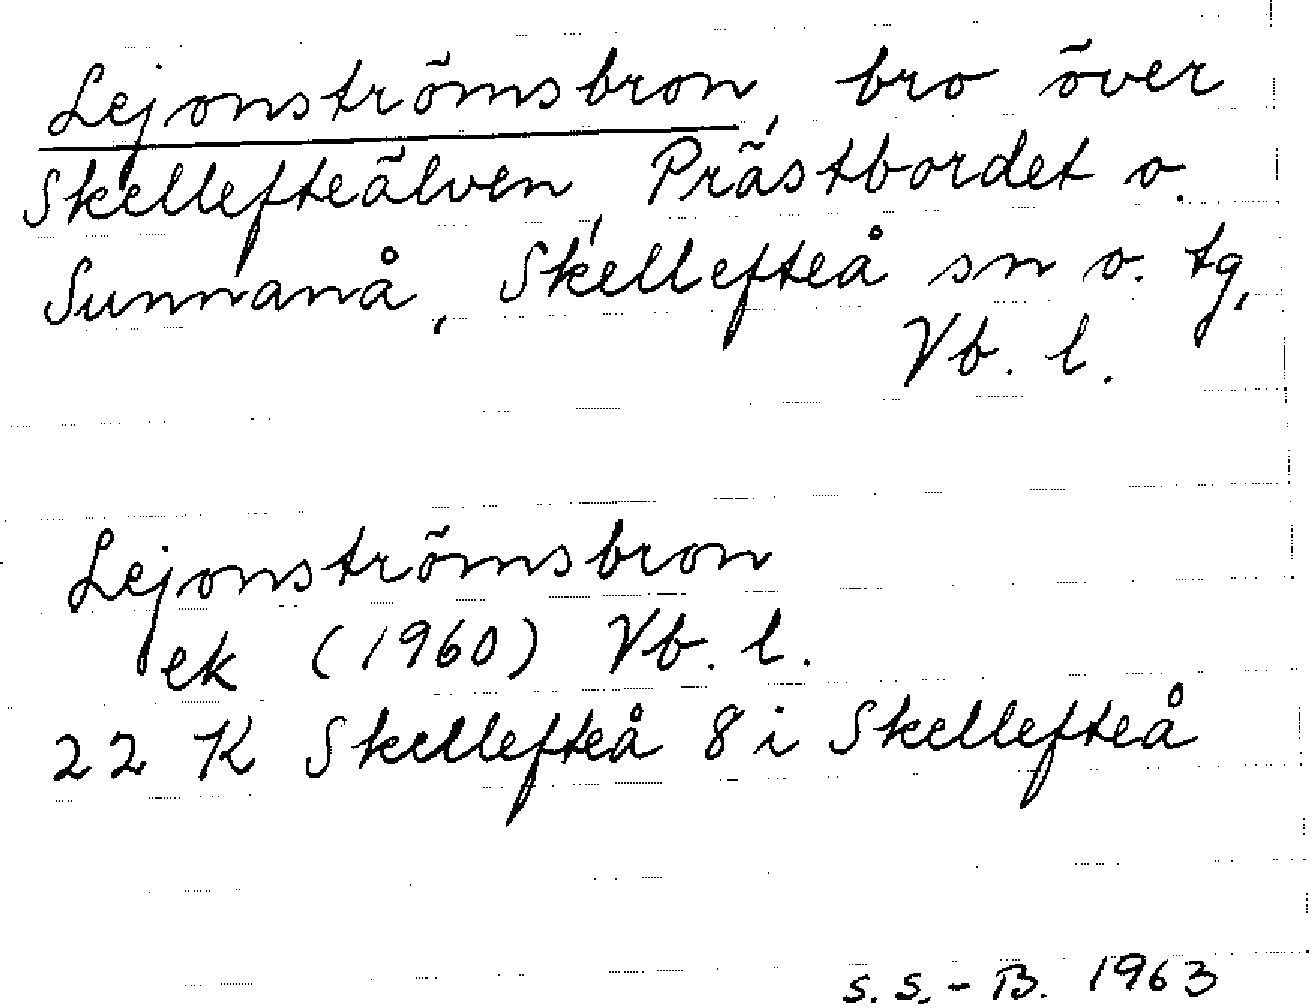 Lejonströmsbron, bro över
Skellefteälven, Prästbordet o.
Sunnanå, Skellefteå sn o. tg,
Vb. l.
Lejonströmsbron
ek (1960) Vb. l.
22 K Skellefteå 8 i Skellefteå
S. S. - B. 1963